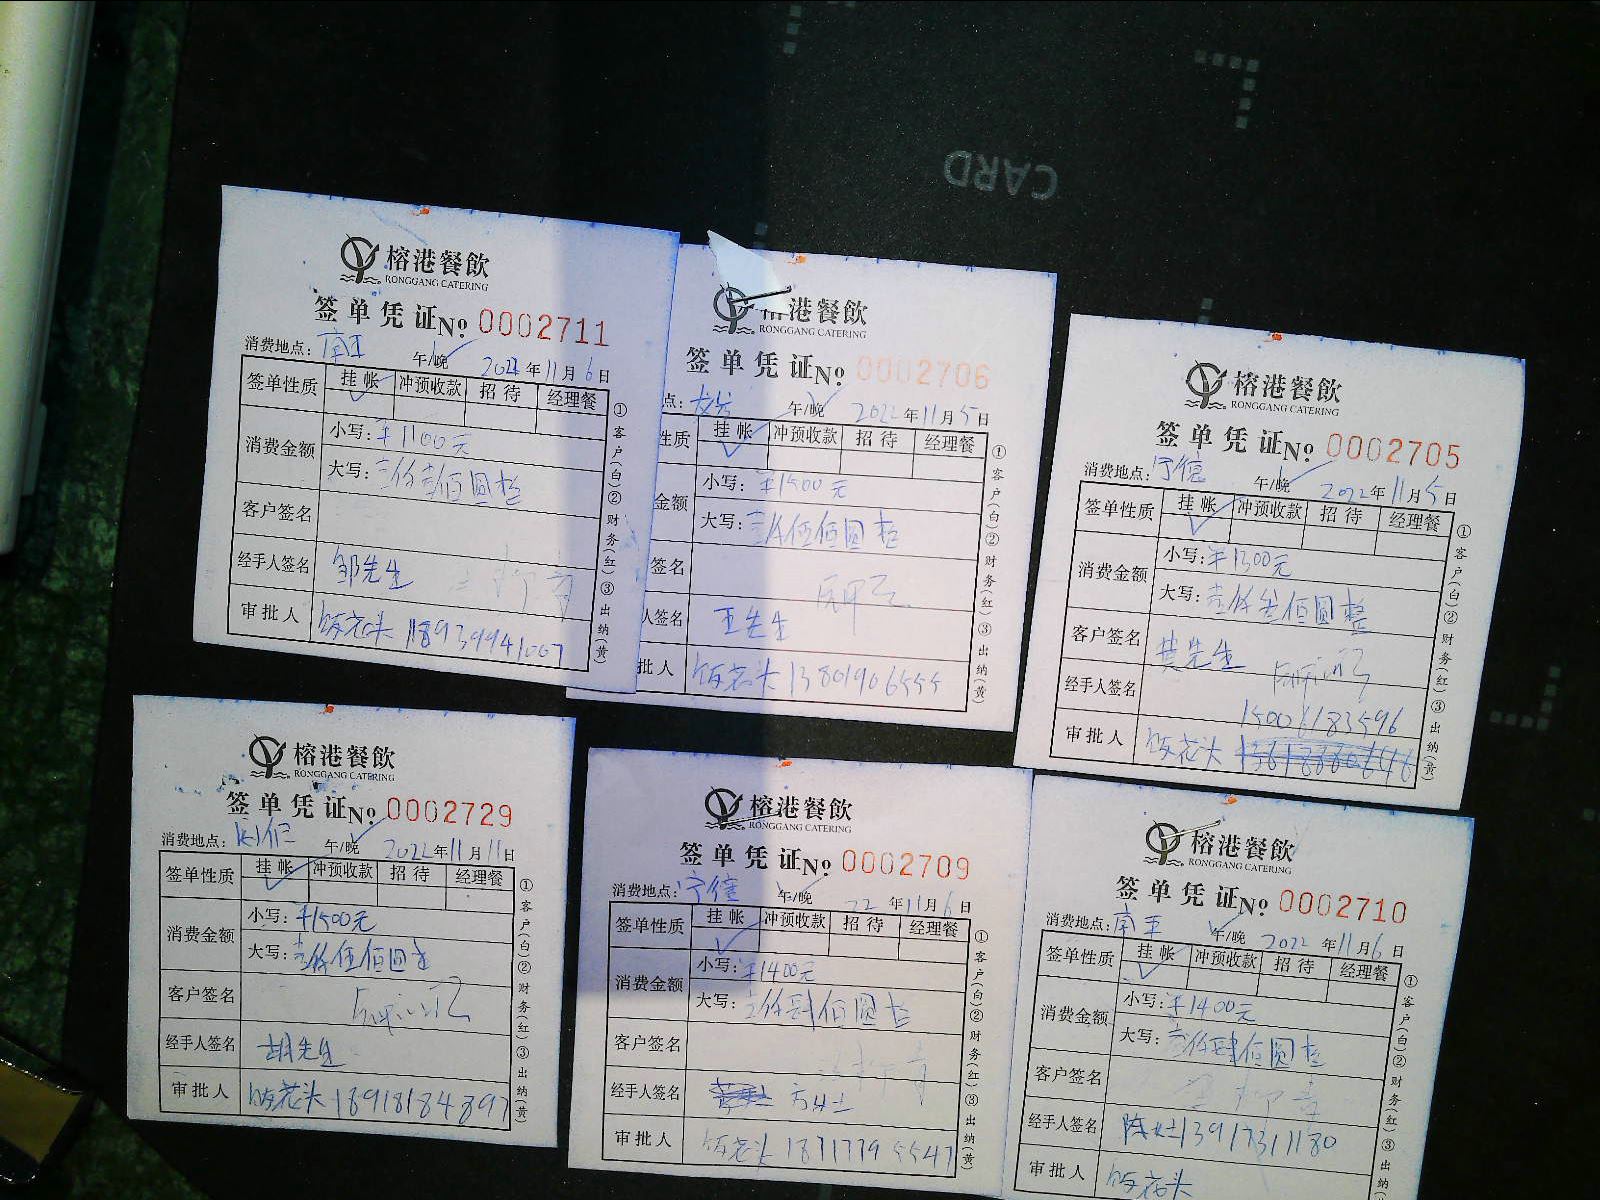 CARD
榕港餐飲
RONGGANG CATERING
签单凭证 No 0002711
消费地点: 南平 午/晚 2022年11月6日
签单性质 挂帐 冲预收款 招待 经理餐
消费金额 小写: ¥1100元
大写: 壹仟壹佰圆整
客户签名
经手人签名 邹先生
审批人 18939941007
①客户(白)②财务(红)③出纳(黄)
榕港餐飲
RONGGANG CATERING
签单凭证 No 0002706
点: 午/晚 2022年11月5日
性质 挂帐 冲预收款 招待 经理餐
金额 小写: ¥1500元
大写: 壹仟伍佰圆整
签名
人签名 王先生
批人 13801906555
①客户(白)②财务(红)③出纳(黄)
榕港餐飲
RONGGANG CATERING
签单凭证 No 0002705
消费地点: 宁德 午/晚 2022年11月5日
签单性质 挂帐 冲预收款 招待 经理餐
消费金额 小写: ¥1300元
大写: 壹仟叁佰圆整
客户签名 黄先生
经手人签名
15006183596
审批人
①客户(白)②财务(红)③出纳(黄)
榕港餐飲
RONGGANG CATERING
签单凭证 No 0002729
消费地点: 午/晚 2022年11月11日
签单性质 挂帐 冲预收款 招待 经理餐
消费金额 小写: ¥1500元
大写: 壹仟伍佰圆整
客户签名
经手人签名 胡先生
审批人 18918184897
①客户(白)②财务(红)③出纳(黄)
榕港餐飲
RONGGANG CATERING
签单凭证 No 0002709
消费地点: 宁德 午/晚 22年11月6日
签单性质 挂帐 冲预收款 招待 经理餐
消费金额 小写: ¥1400元
大写: 壹仟肆佰圆整
客户签名
经手人签名 方女士
审批人 18717795547
①客户(白)②财务(红)③出纳(黄)
榕港餐飲
RONGGANG CATERING
签单凭证 No 0002710
消费地点: 南平 午/晚 2022年11月6日
签单性质 挂帐 冲预收款 招待 经理餐
消费金额 小写: ¥1400元
大写: 壹仟肆佰圆整
客户签名
经手人签名 陈女士13917311180
审批人
①客户(白)②财务(红)③出纳